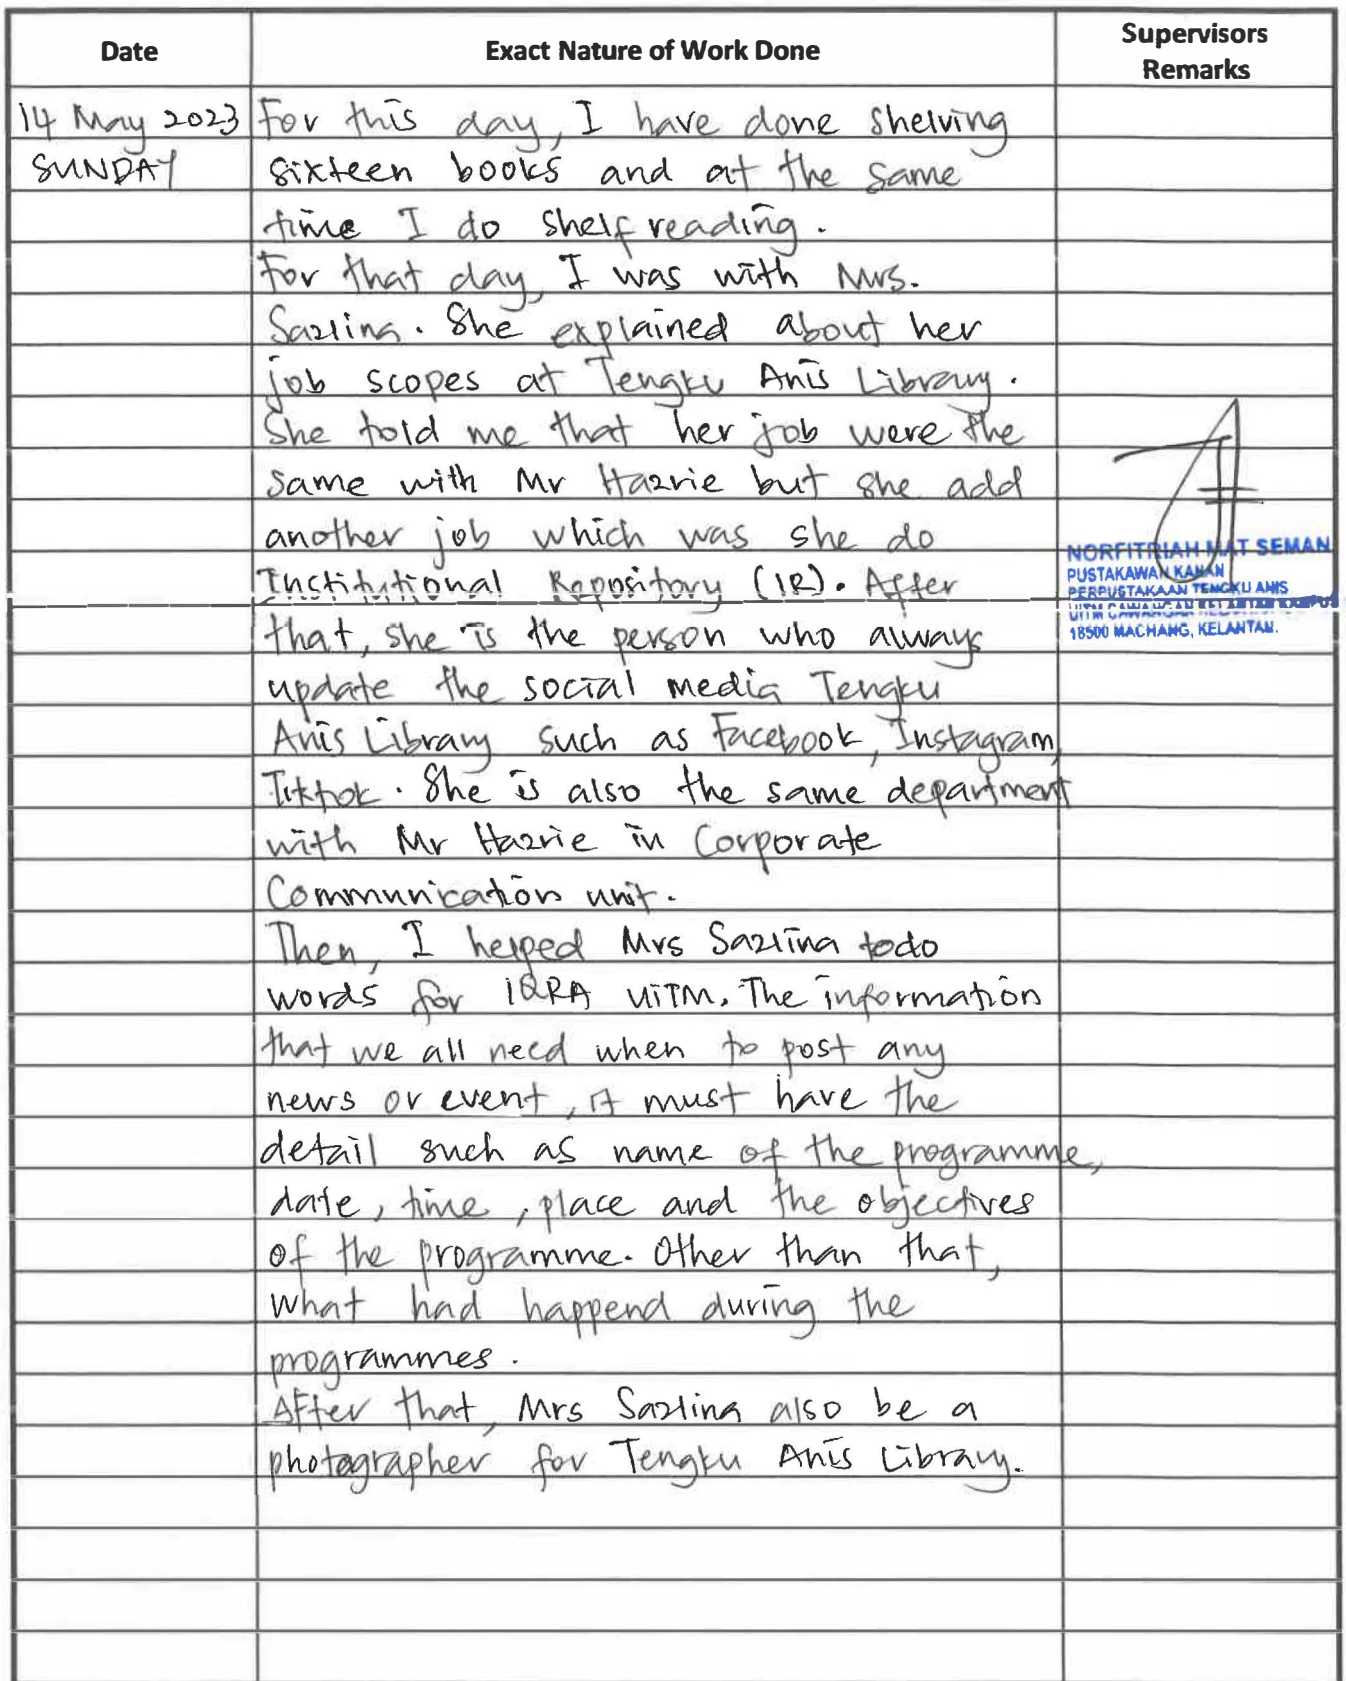 Date Exact Nature of Work Done Supervisors
Remarks
14 May 2023 For this day, I have done shelving
SUNDAY sixteen books and at the same
time I do shelf reading.
For that day, I was with Mrs.
Sazlina. She explained about her
job scopes at Tengku Anis Library.
She told me that her job were the
same with Mr Hazrie but she add
another job which was she do
Institutional Repository (IR). After
that, she is the person who always
update the social media Tengku
Anis Library such as Facebook, Instagram,
Tiktok. She is also the same department
with Mr Hazrie in Corporate
Communication unit.
Then, I helped Mrs Sazlina todo
words for IQRA UiTM. The information
that we all need when to post any
news or event, it must have the
detail such as name of the programme,
date, time, place and the objectives
of the programme. Other than that,
what had happend during the
programmes.
After that, Mrs Sazlina also be a
photographer for Tengku Anis Library.
NORFITRIAH MAT SEMAN
PUSTAKAWAN KANAN
PERPUSTAKAAN TENGKU ANIS
UITM CAWANGAN KELANTAN KAMPUS
18500 MACHANG, KELANTAN.